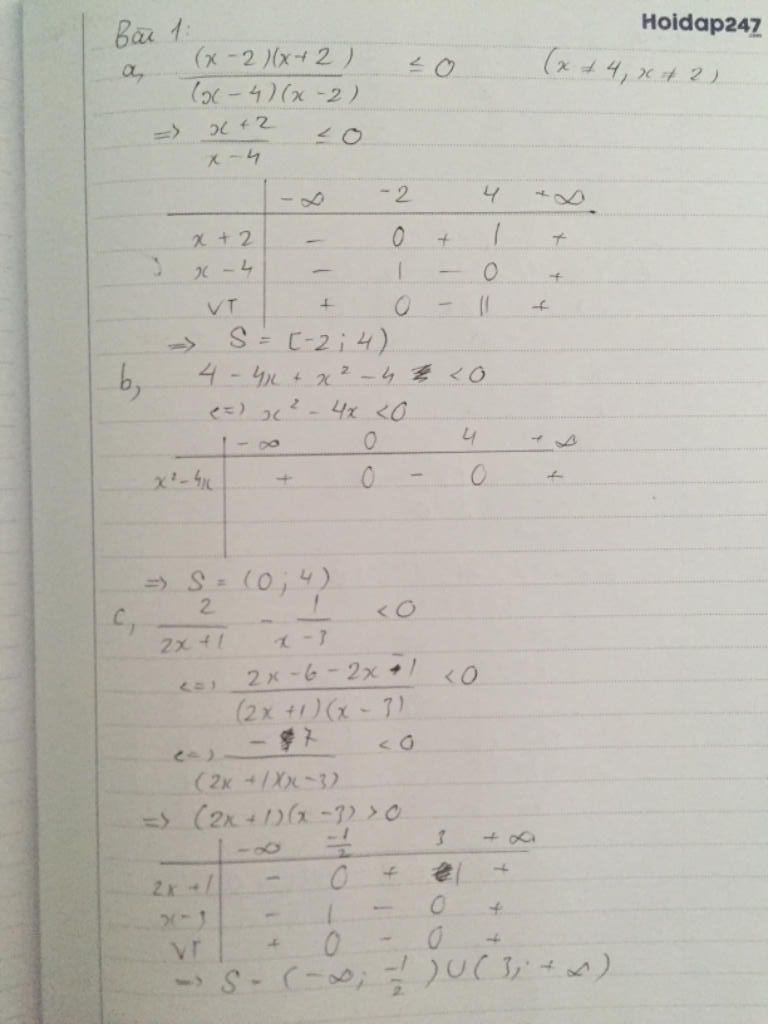 Hoidap247
.com
Bài 1:
a, (x-2)(x+2) / (x-4)(x-2) ≤ 0 (x ≠ 4, x ≠ 2)
=> x+2 / x-4 ≤ 0
-∞ -2 4 +∞
x+2 - 0 + | +
x-4 - | - 0 +
VT + 0 - || +
=> S = [-2; 4)
b, 4 - 4x + x² - 4 < 0
<=> x² - 4x < 0
-∞ 0 4 +∞
x²-4x + 0 - 0 +
=> S = (0; 4)
c, 2 / 2x+1 - 1 / x-3 < 0
<=> 2x-6-2x-1 / (2x+1)(x-3) < 0
<=> -7 / (2x+1)(x-3) < 0
=> (2x+1)(x-3) > 0
-∞ -1/2 3 +∞
2x+1 - 0 + | +
x-3 - | - 0 +
VT + 0 - 0 +
=> S = (-∞; -1/2) ∪ (3; +∞)